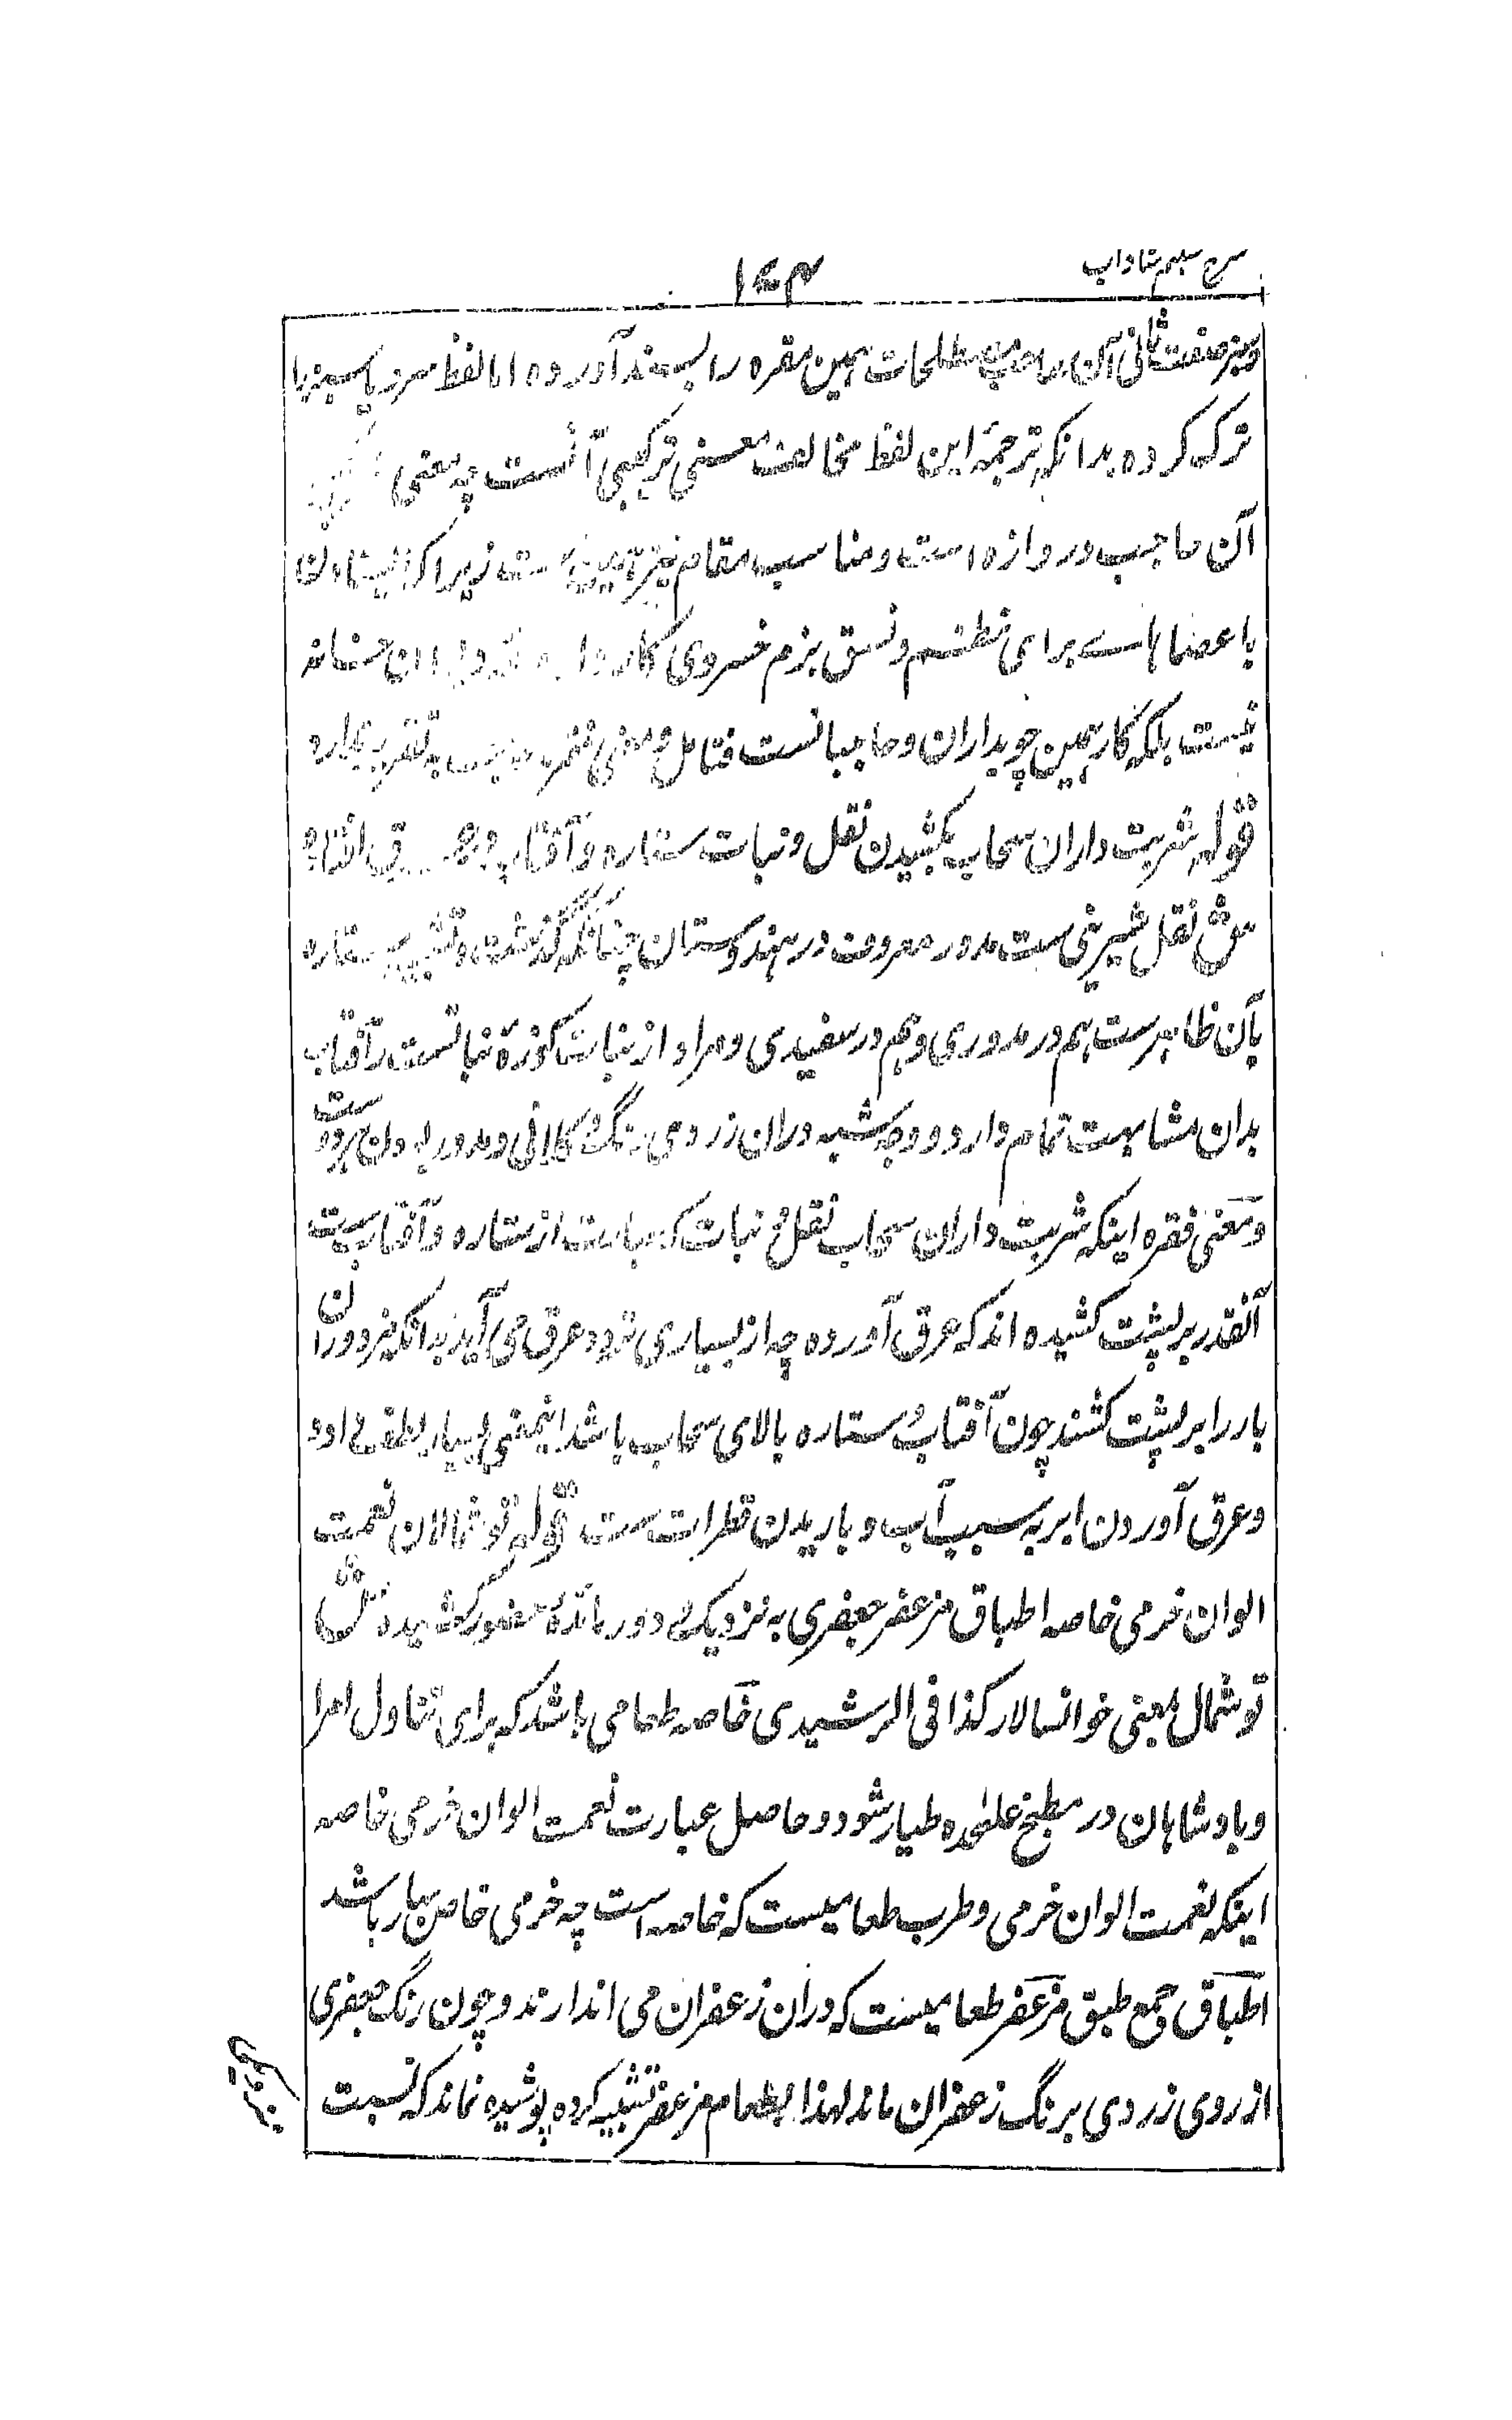 شرح شبنم شاداب
۱۷۴
وسبز صفت ثانی آن صاحب مصطلحات همین فقره را بسند آورده اما لفظ سرو یا سبز را
ترک کرده بدانکه ترجمۀ این لفظ مخالف معنی ترکیبی آنست چه معنی
آن حاجب دروازه است و مناسب مقام نیز همین ست زیرا که ایستادن
با عصاها سے برای نظم و نسق بزم خسروی کار
نیست بلکه کار همین چوبداران و حاجبانست فتامل و معنی فقره
قوله شربت داران سحاب بکشیدن نقل و نبات ستاره و آفتاب
ش نقل شیرینی ست مدور معروف در هندوستان چنانکه گذشت و تشبیه ستاره
بآن ظاهرست هم در مدوری و هم در سفیدی و مراد از نبات کوزۀ نباتست و آفتاب
بدان مشابهت تمام دارد و وجه شبه دران زردی رنگ و کلانی و مدور بودن هر دوست
ومعنی فقره اینکه شربت داران سحاب نقل و نبات که عبارت از ستاره و آفتاب ست
آنقدر بر پشت کشیده اند که عرق آورده چه از بسیاری تردد عرق می آید بدانکه مزدوران
بار را بر پشت کشند چون آفتاب و ستاره بالای سحاب باشد اینمعنی بسیار لطف داد
وعرق آوردن ابر به سبب آب و باریدن قطرات ست قوله توشمالان نعمت
الوان خرمی خاصه اطباق مزعفر جعفری به نزدیک و دور مائدۀ حضور کشیده ش
توشمال بمعنی خوانسالار کذا فی الرشیدی خاصه طعامی باشد که برای تناول امرا
وبادشاهان در مطبخ علٰحده طیار شود و حاصل عبارت نعمت الوان خرمی خاصه
اینکه نعمت الوان خرمی و طرب طعامیست که خاصه است چه خرمی خاص بهار باشد
اطباق جمع طبق مزعفر طعامیست که دران زعفران می اندازند و چون رنگ جعفری
از روی زردی برنگ زعفران ماند لهذا بطعام مزعفر تشبیه کرده پوشیده نماند که نسبت